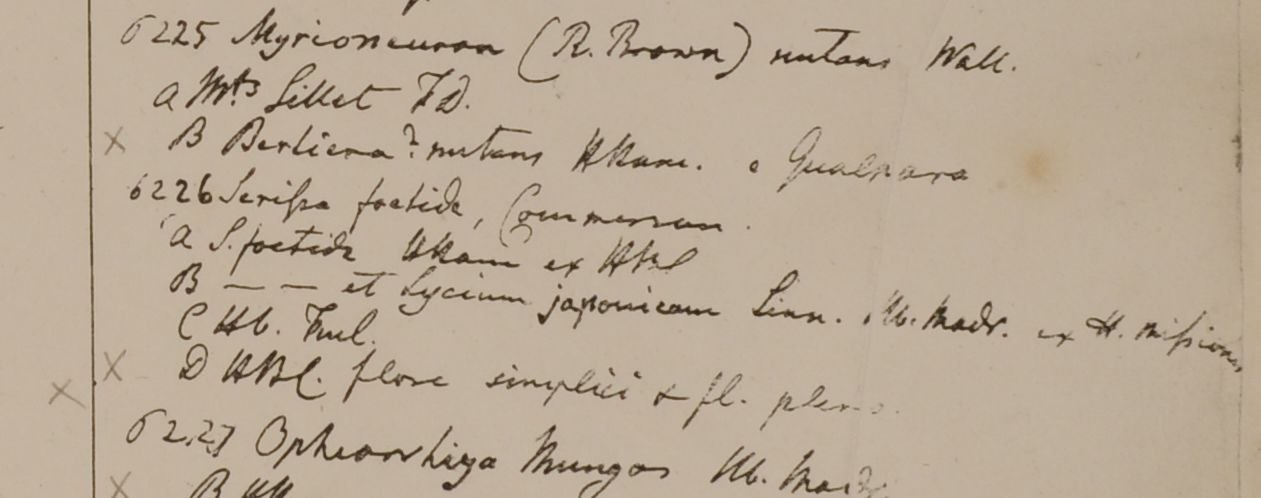 6225 Myrioneuron (R. Brown) nutans Wall.
a Mts Sillet F.D.
x B Bertiera? nutans HHam. e Gualpara
6226 Serissa foetida, Commerson.
a S. foetida HHam ex HBC
B — — et Lycium japonicum Linn. Hb. Madr. ex H. missionis
C Hb. Finl.
x x D HBC. flore simplici & fl. pleno.
6227 Ophiorrhiza Mungos Hb. Madr
x B HH